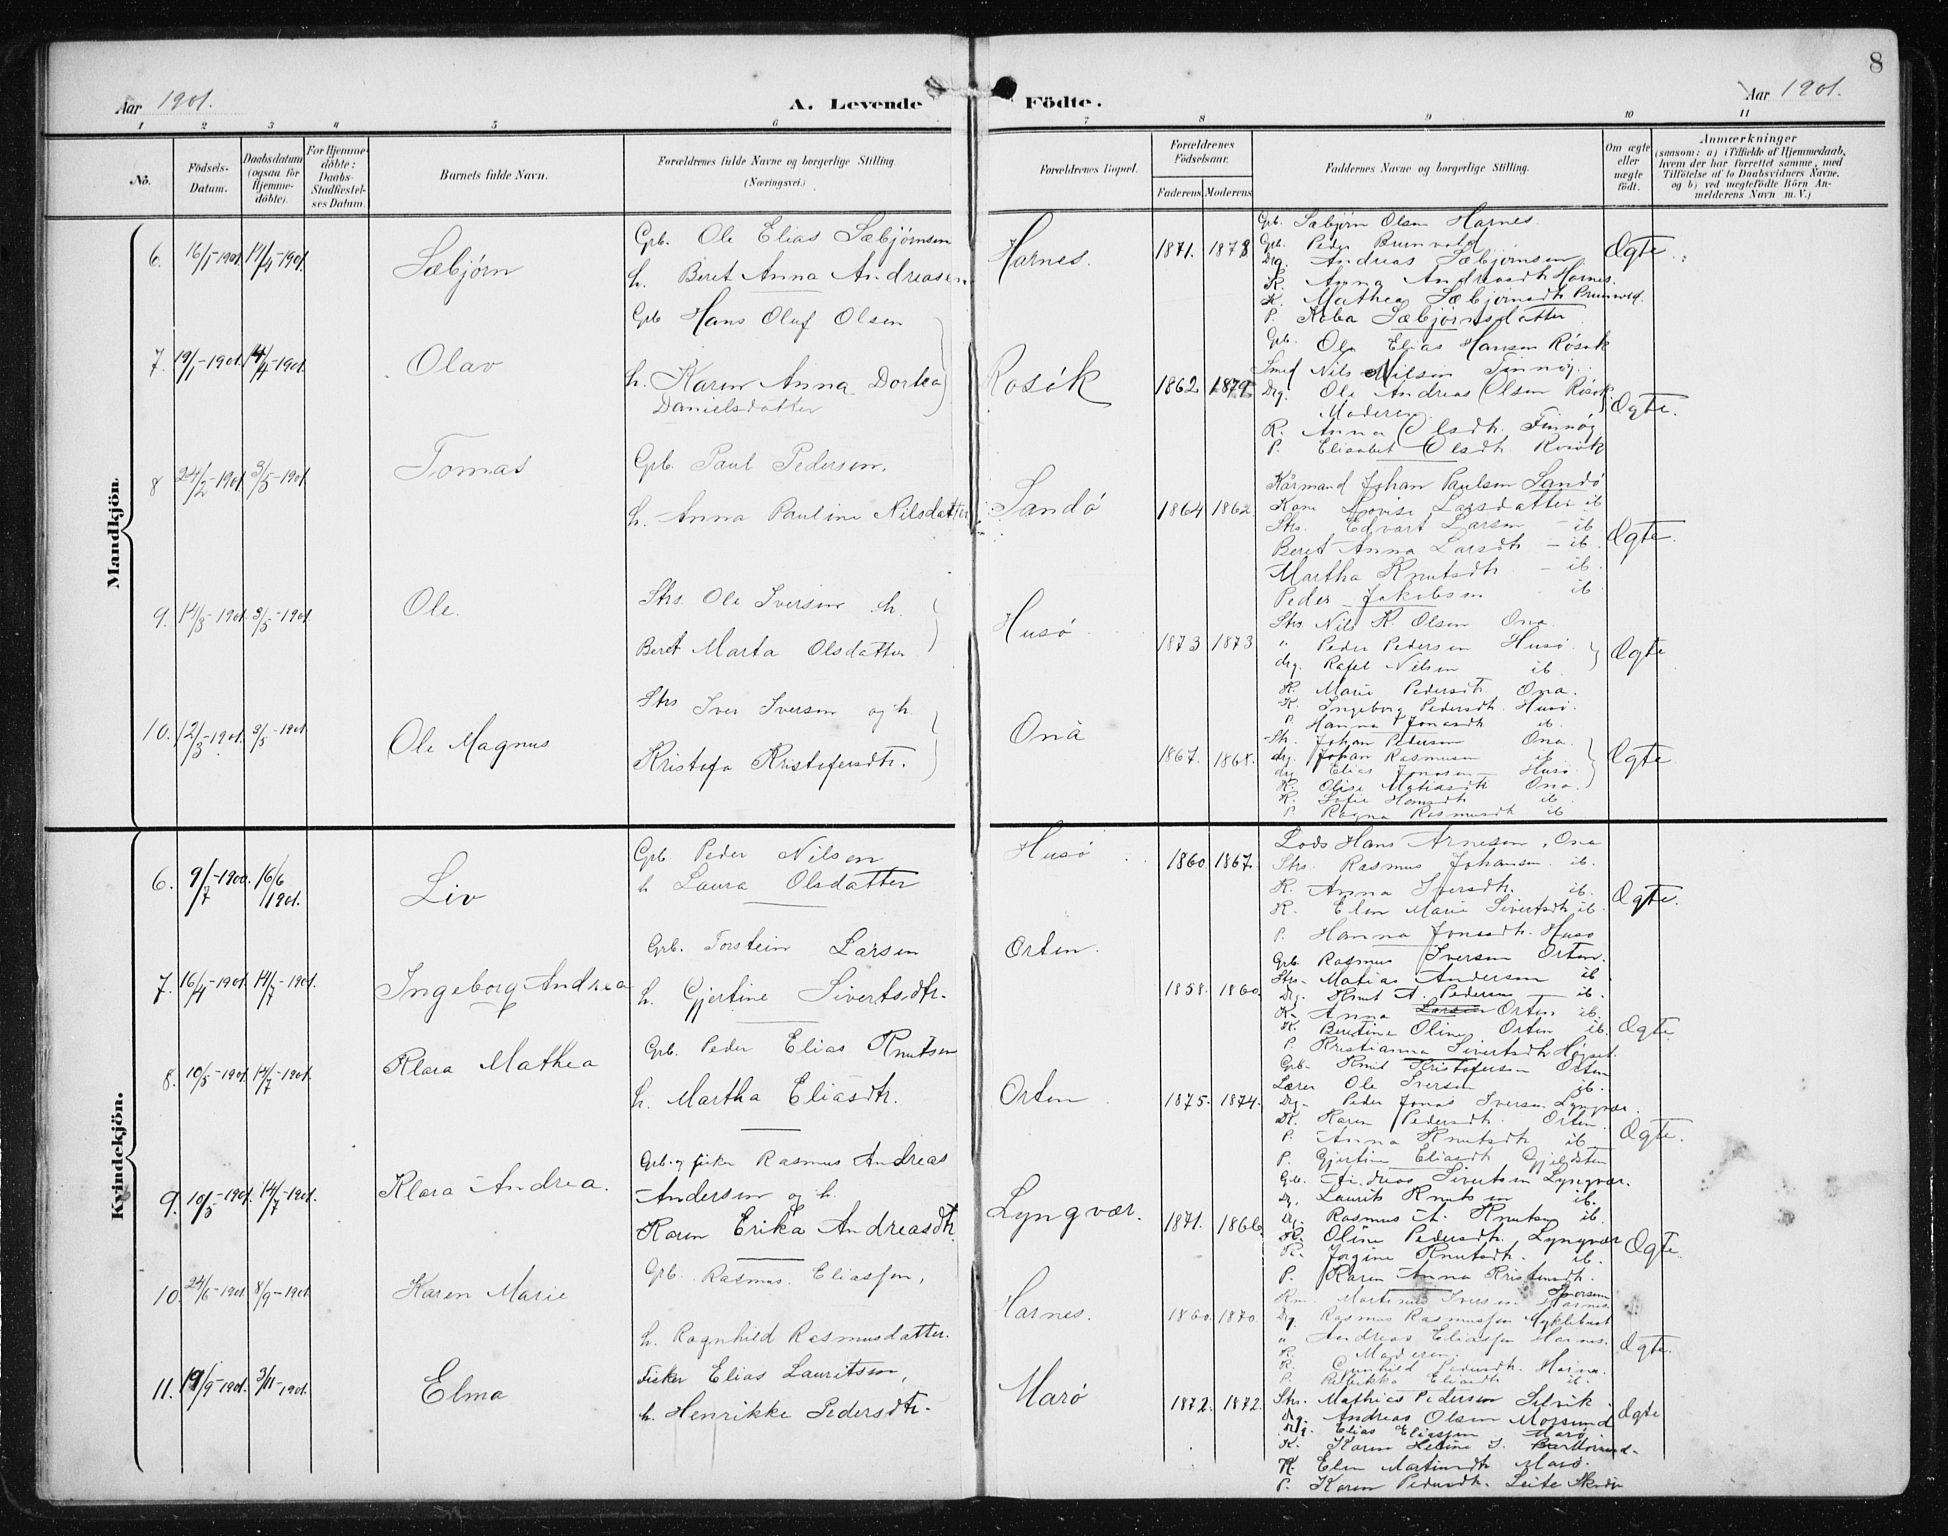 8
Aar 1901.
A. Levende Födte.
Aar 1901.
1 2 3 4 5 6 7 8 9 10 11
No.
Födsels-Datum.
Daabsdatum (ogsaa for Hjemme-döbte).
For Hjemme-döbte: Daabs-Stadfæstel-ses Datum.
Barnets fulde Navn.
Forældrenes fulde Navne og borgerlige Stilling. (Næringsvei.)
Forældrenes Bopæl.
Forældrenes Födselsaar.
Faderens. Moderens.
Faddernes Navne og borgerlige Stilling.
Om ægte eller uægte födt.
Anmærkninger
(saasom: a) i Tilfælde af Hjemmedaab,
hvem der har forrettet samme, med
Tilföielse af to Daabsvidners Navne.
og b) ved uægtefödte Börn An-
melderens Navn m. V.)
Mandkjön.
6. 16/1-1901 Sæbjørn
Grb. Ole Elias Sæbjørnsen
h. Beret Anna Andreasen
Harnes. 1871. 1878
Grb. Sæbjørn Olsen Harnes.
Grb. Peder Brunvold
Drg. Andreas Sæbjørnsen
K. Anna Andreasdtr Harnes.
K. Mathea Sæbjørnsdtr Brunvold.
P. Sæbjørnsdatter
Ægte
7. 19/1-1901 14/4-1901 Olav
Grb Hans Oluf Olsen
h. Karen Anna Dortea
Danielsdatter
Rosök 1862 1879
Grb. Ole Elias Hansen Rösok
Smed Nils Nilsen Finnöy.
Drg. Ole Andreas Olsen Rösok
Moderen.
K. Anna Olsdtr. Finnöy
P. Elisabet Olsdtr. Rosök
Ægte.
8 24/2-1901 3/5-1901 Tomas
Grb. Paul Pedersen.
h. Anna Pauline Nilsdatter
Sandö 1864 1862
Kårmand Johan Paulsen Sandö
Kone Lovise Larsdatter ib
Strs. Edvart Larsen - ib
Beret Anna Larsdtr - ib.
Martha Knutsdtr. - ib.
Peder Jakobsen ib.
Ægte.
9. 14/3-1901 3/5-1901 Ole.
Strs. Ole Iversen h.
Beret Marta Olsdatter
Husö 1873 1873
Strs. Nils K. Olsen Ona.
" Peder Pedersen Husö.
drg. Rafel Nilsen ib
K. Marie Pedersdtr. Ona.
K. Ingeborg Pedersdtr. Husö.
P. Hanna Jonasdtr ib.
Ægte
10. 12/3-1901. 3/5-1901 Ole Magnus
Strs Iver Iversen og h.
Kristofa Kristofersdtr.
Onå 1867. 1868.
Str. Johan Pedersen Ona.
drg. Johan Rasmusen ib
drg Elias Jonasen Husö.
K. Olise Matiasdtr Ona.
K. Sofie Hansdtr ib.
P. Ragna Rasmusdtr ib
Ægte
Kvindekjön.
6. 9/7-1900 16/6 1901. Liv
Grb. Peder Nilsen
h Laura Olsdatter
Husö 1860 1867.
Lods Hans Arnesen, Ona
Strs. Rasmus Johansen ib.
K. Anna Iversdtr. ib.
K. Elen Marie Sivertsdtr ib.
P. Hanna Jonasdtr. Husö
Ægte.
7. 16/4-1901. 14/7-1901. Ingeborg Andrea
Grb. Torstein Larsen
h. Gjertine Sivertsdtr.
Orten. 1858. 1860.
Grb. Rasmus Iversen Orten.
Strs. Matias Andersen ib
Drg. Knut A. Pedersen - ib.
K. Anna Larsen Orten ib.
K. Beretine Oline Orten ib.
P. Kristianna Sivertsdtr
Ægte
8. 10/5-1901 14/7-1901. Klara Mathea
Grb. Peder Elias Knutsen
h. Martha Eliasdtr.
Orten 1875. 1874.
Grb. Knut Kristofersen Orten
Lærer Ole Iversen ib.
Drg. Peder Jonas Iversen Lyngvær.
K. Karen Pedersdtr. Orten.
P. Anna Knutsdtr ib
P. Gjertine Eliasdtr
Ægte.
9. 10/5-1901. 14/7-1901. Klara Andrea.
Grb. og fisker Rasmus Andreas
Andersen og h.
Karen Erika Andreasdtr.
Lyngvær. 1871. 1866
Grb. Andreas Sivertsen Lyngvær.
Dg. Laurits Knutsen ib.
Drg. Rasmus A. Knutsen ib.
K. Oline Pedersdtr. Lyngvær
K. Jorgine Knutsdtr. ib.
P. Karen Anna Kristensdtr.
Ægte.
10. 24/6-1901 8/9-1901 Karen Marie
Grb. Rasmus Eliassen,
h. Ragnhild Rasmusdatter.
Harnes. 1860. 1870.
Martinus Iversen Harnes.
Drg Rasmus Rasmussen Myklebust
" Andreas Eliassen Harnes.
K. Moderen.
K. Gunhild Pedersdtr.
P. Eliasdtr ib.
Ægte.
11. 19/9-1901. 3/11-1901. Elma
Fisker Elias Lauritsen,
h. Henrikke Pedersdtr.
Marö 1872. 1872.
Strs. Mathias Pedersen
Drg. Andreas Olsen Morsund
Drg. Elias Eliassen Marö
K. Karen Heline
K. Elen Martinsdtr Marö.
P. Karen Pedersdtr.
Ægte